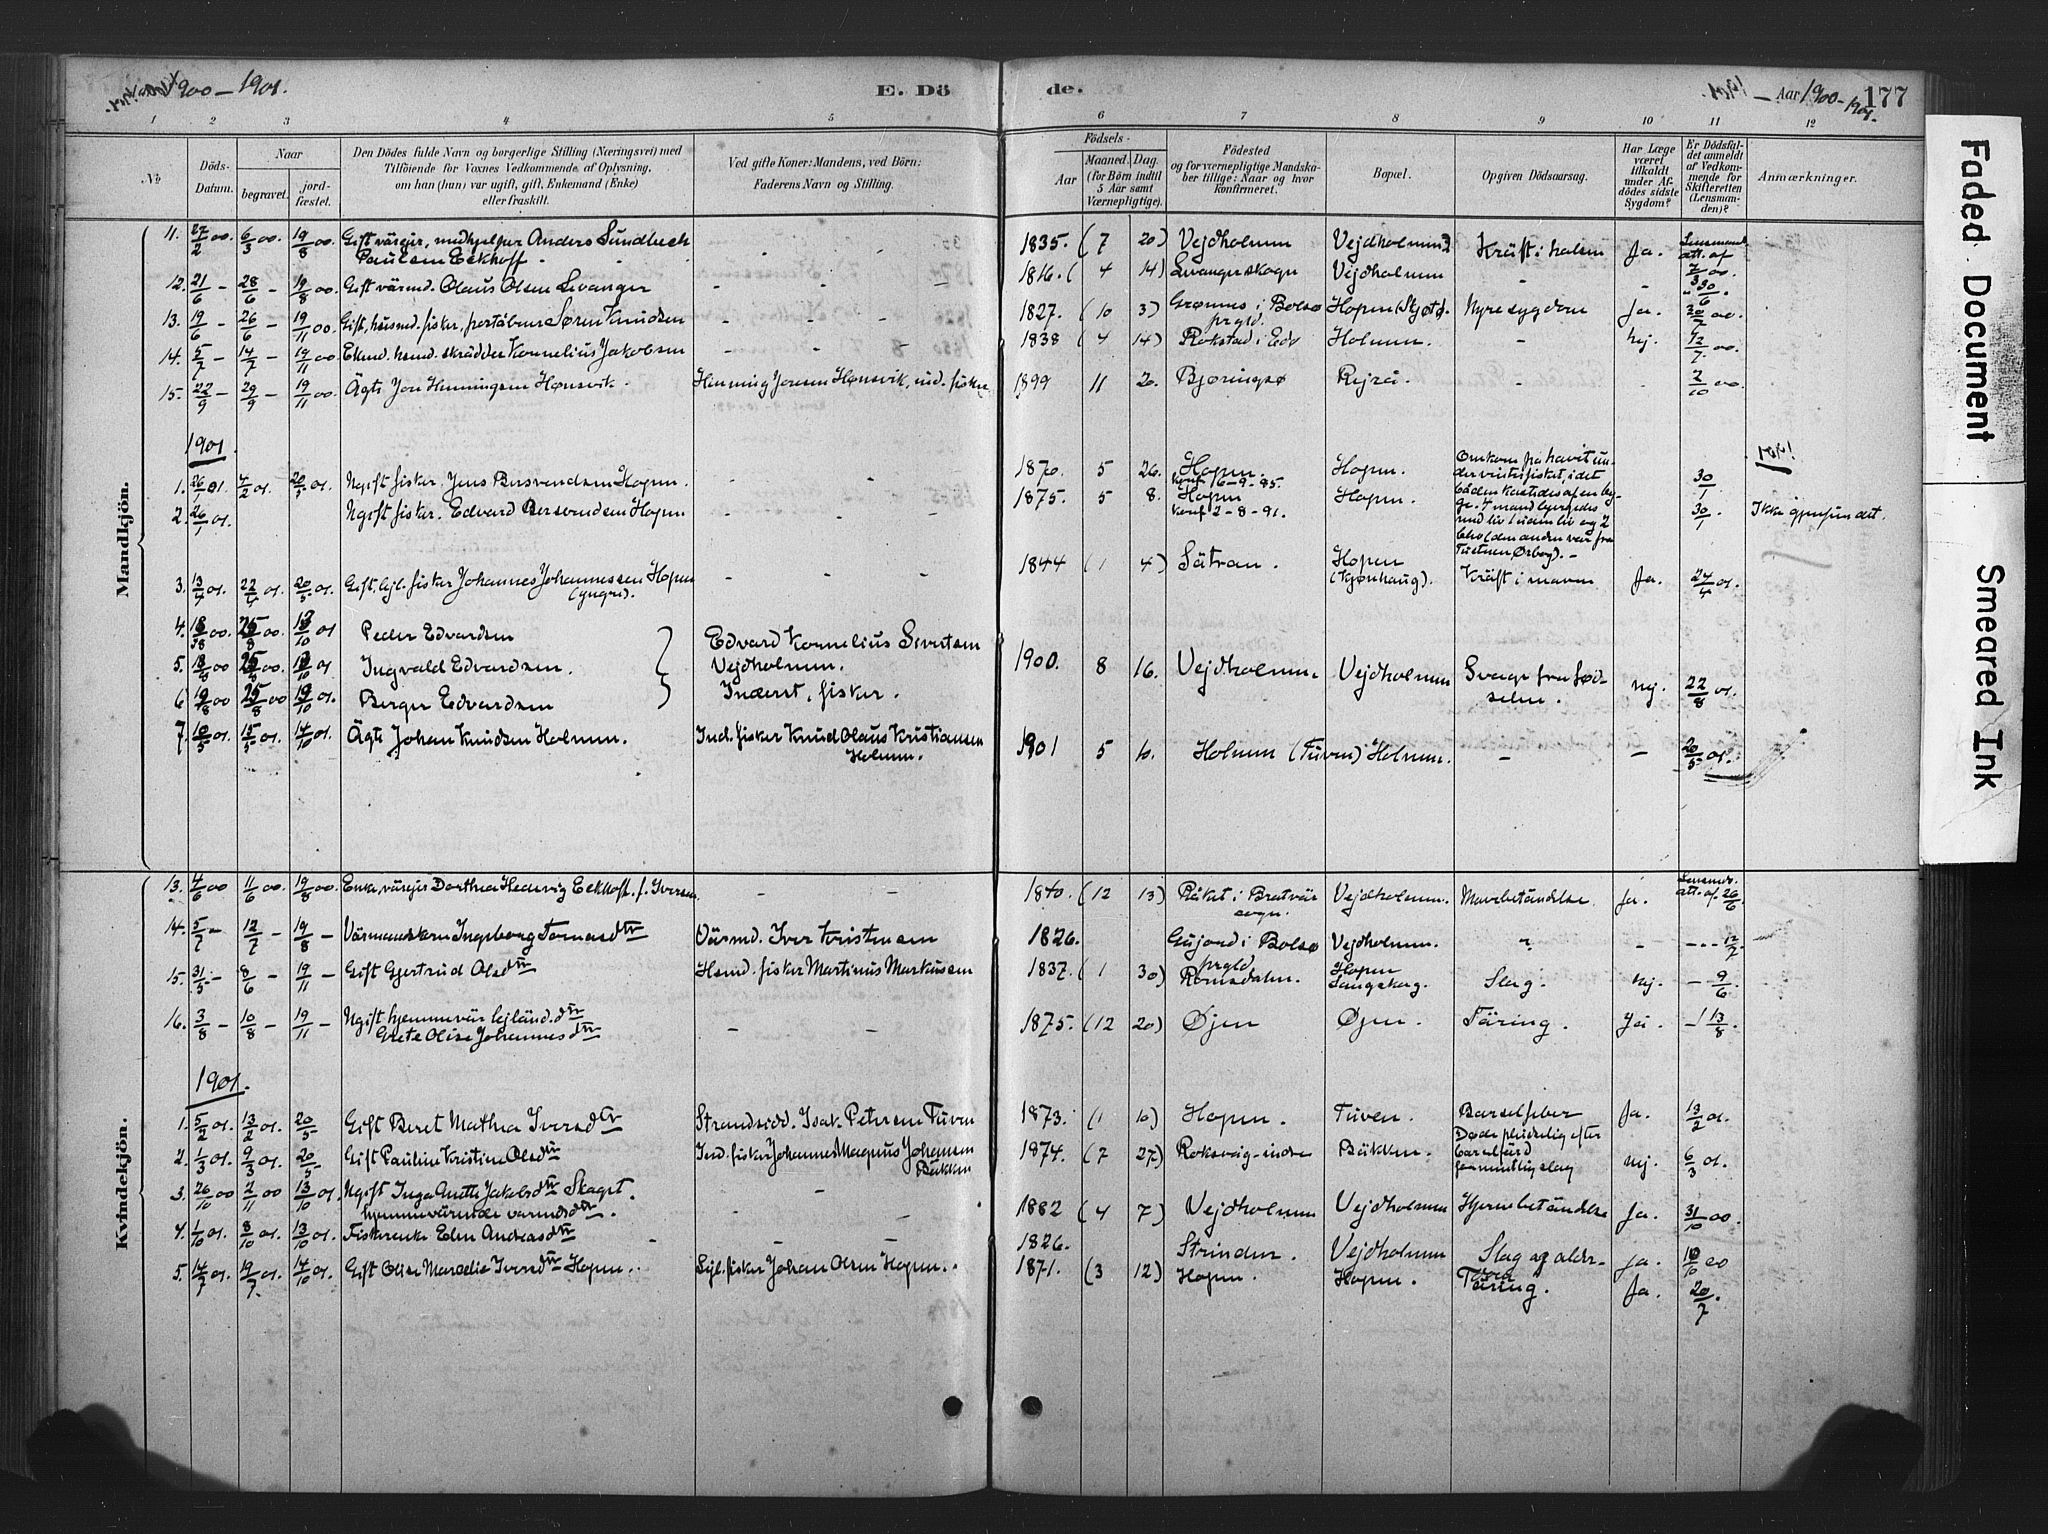 1900 – 1901.
E. Dö
de.
1901.
– Aar 1900–1901.
177
1 2 3 4 5 6 7 8 9 10 11 12
№
Döds-
Datum.
Naar
begravet.
jord-
fæstet.
Den Dödes fulde Navn og borgerlige Stilling (Næringsvei) med
Tilföiende for Voxnes Vedkommende af Oplysning,
om han (hun) var ugift, gift, Enkemand (Enke)
eller fraskilt.
Ved gifte Koner: Mandens, ved Börn:
Faderens Navn og Stilling.
Födsels-
Aar
Maaned. Dag.
(for Börn indtil
5 Aar samt
Værnepligtige).
Födested
og for værnepligtige Mandska-
ber tillige: Naar og hvor
konfirmeret.
Bopæl.
Opgiven Dödsaarsag.
Har Læge
været
tilkaldt
under Af-
dödes sidste
Sygdom?
Er Dödsfal-
det anmeldt
af Vedkom-
mende for
Skifteretten
(Lensman-
den)?
Anmærkninger.
Mandkjön.
11. 27/2 00. 6/3 00. 19/8 00. Gift værejer, medhjelper Anders Sundbech - - 1835. (7 20) Vejdholmen Vejdholmen Kräft i halsen Ja. Lensmand.
Paulsen Eckhoff. att. af 7/3 00.
12. 21/6 – 28/6 – 19/8 00. Gift värmd. Olaus Olsen Levanger - - - 1816. (4 14) Levanger skogn Vejdholmen - - 30/6.
13. 19/6 – 26/6 – 19/11 00. Gift, husmd. fisker, Søren Knudsen - - - 1827. (10 3) Grønnes i Bolsø Hopen (Skjøtø. Nyresygdom Ja. 20/7 00.
prgld.
14. 5/7 – 14/7 – 19/11 00. Enkmd. husmd. skrädder Kornelius Jakobsen - - 8 1838 (4 14) Rokstad i Edø Holmen. - Nej. 12/7 00.
15. 22/9 – 29/9 – 19/11 00. Ägte Jon Henningsen Hønsvik. Henning Jonsen Hønsvik, ind. fisker 1899 11 20. Bjøringsø - - - 2/10 00.
1901.
1901
1. 26/1 01. 4/2 01. 20/5 01. Ugift fisker Jens Bersvendsen Hopen. - - 1870. 5 26. Hopen. Hopen. Omkom på havet un-
konf. 16-9-85. der vinterfisket, idet 30/1
2. 26/1 01. Ugift fisker. Edvard Bersvendsen Hopen - - - 1875. 5 8. Hopen Hopen. båden kastedes af en byge. 30/1 Ikke gjenfundet.
konf. 2-8-91. 4 mand bjergedes
med liv 1 uden liv og 2
beholden anden vei fra
Tustnen Ørbog). –
3. 13/4 01. 22/4 01. 20/5 01. Gift. lejl. fisker Johannes Johannessen Hopen - - - 1844 (1 4) Sätran. Hopen Kräft i maven Ja. 24/4 01.
(yngre). (Kjønhaug).
4. 18/8 00. 25/8 00. 13/10 01 Peder Edvardsen
Edvard Kornelius Sivertsen
5. 18/8 00 25/8 00. 13/10 01 Ingvald Edvardsen. Vejdholmen. 1900. 8 16. Vejdholmen. Vejdholmen Svage fra fød-
6 19/8 00 25/8 00 13/10 01. Berger Edvardsen Inderst, fisker. selen. Nej. 22/8 01.
7. 10/5 01. 15/5 01. 14/10 01. Ägte Johan Knudsen Holmen. Ind. fisker Knud Olaus Kristiansen 1901 5 10. Holmen (Tuven) Holmen. - - 20/5 01.
Holmen.
Kvindekjön.
13. 4/6 00 11/6 00. 19/8 00. Enke, värejer Dorthea Hedevig Eckhoff. f. Iversen. - - 1840. (12 13) Råket i Bratvär Vejdholmen. Mavebetändelse Ja. Lensmd.
sogn. att. af. 26/6.
14. 5/7 – 12/7 – 19/8 – Värmandskone Ingeborg Tomasdtr Värmd. Iver Kristensen 1826. Gujord i Bolsø Vejdholmen. - - - 12/7
prgld
15. 31/5 – 8/6 – 19/11 – Gift Gjertrud Olsdtr Husmd. fisker Martinus Markussen 1837. (1 30) Romsdalen. Hopen Slag. Nej. – 9/6.
16. 3/8 – 10/8 – 19/11 – Ugift hjemmevär lejländ. dtr - - 1875. (12 20) Øjen Øjen. Täring. Ja. – 13/8.
Grete Olise Johannesdtr
1901.
1. 5/2 01. 13/2 01. 20/5 Gift Beret Mathea Iversdtr Strandsidd. Isak Petersen Tuven 1873. (1 10) Hopen. Tuven. Barselfeber Ja. 13/2 01.
2. 1/3 01. 9/3 01. 20/5. Gift Pauline Kristine Olsdtr Ind. fisker Johannes Magnus Johansen 1874. (7 27) Roksvåg indre Bäkken. Døde pludselig efter
Bäkken barselfärd Nej. 6/3 01.
formentlig slag
3. 26/10 00 2/11 00 13/10 01. Ugift Inga Anette Jakobsdtr Skaget. - - 1882 (4 7) Vejdholmen Vejdholmen Hjernebetändelse Ja. 31/10 00.
hjemmevärende varmdsdtr.
4. 1/10 01. 8/10 01. 13/10 01. Fiskerenke Elen Andreasdtr - - - 1826. Strinden. Vejdholmen Slag og alder- Ja. 10/10 00
5. 14/7 01. 19/7 01. 14/10 01. Gift Olise Marcelie Iversdtr Hopen. Lejl. fisker Johan Olsen Hopen. 1871. (3 12) Hopen. Hopen. Täring. Ja. 20/7.
Faded Document
Smeared Ink